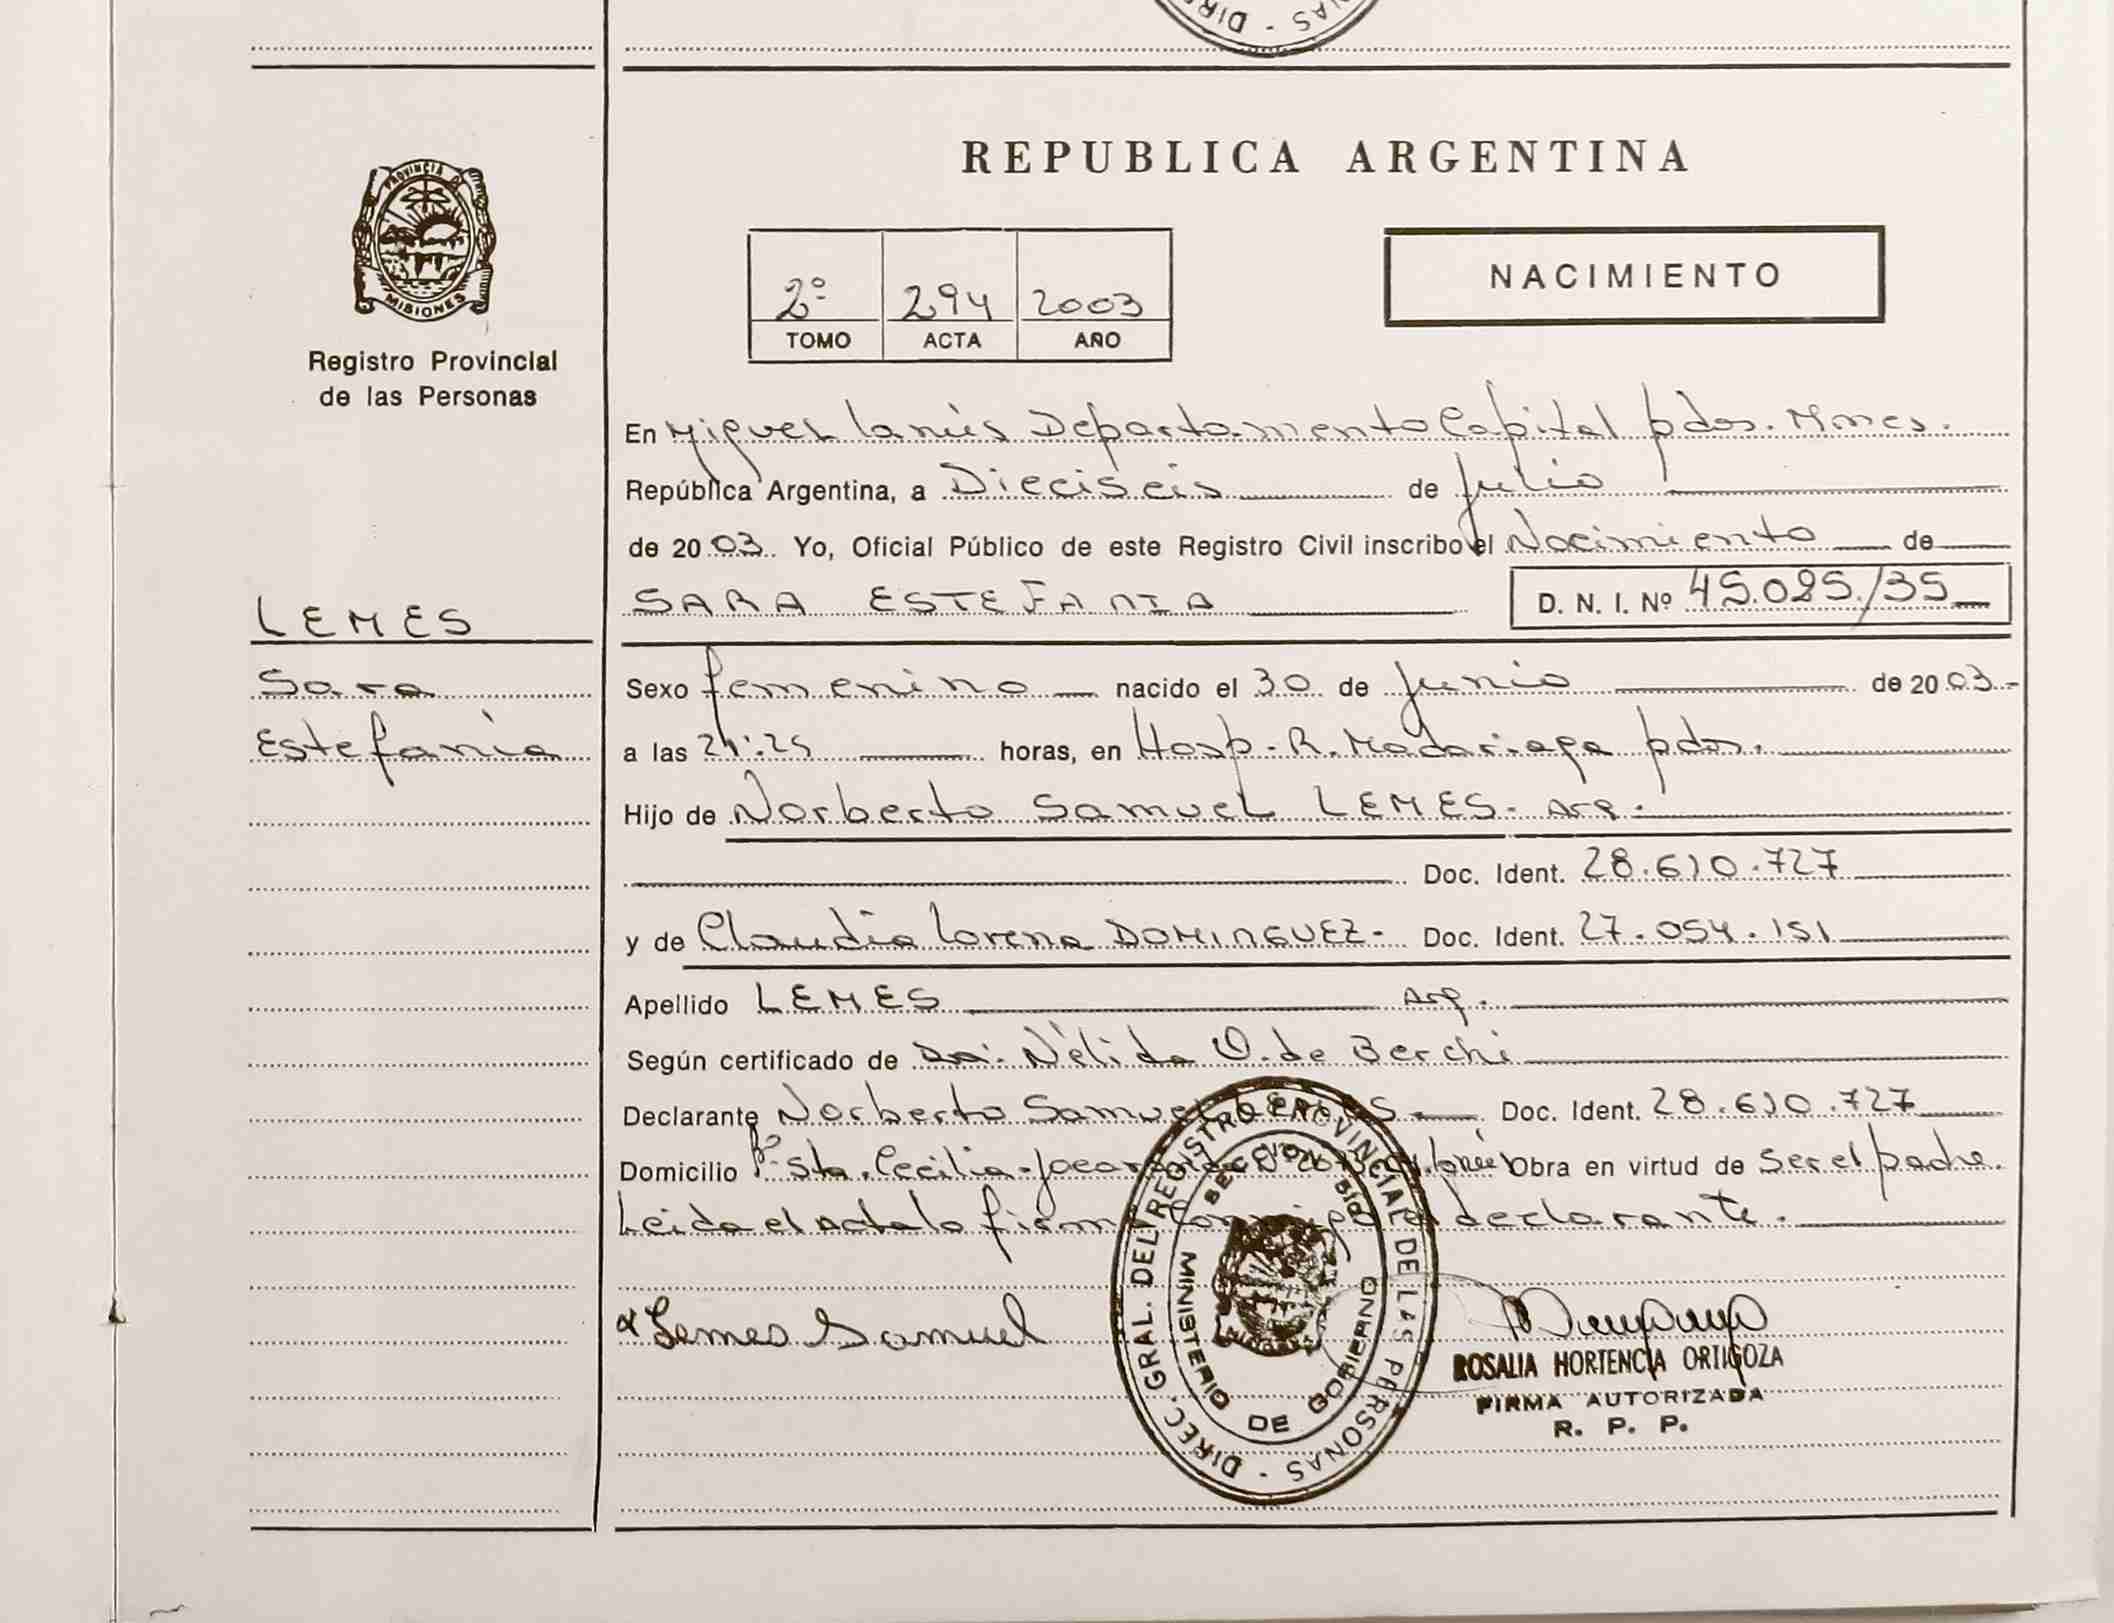 DIREC. GRAL. DEL REGISTRO PROVINCIAL DE LAS PERSONAS
PROVINCIA DE
MISIONES
Registro Provincial
de las Personas
REPUBLICA ARGENTINA
2º 294 2003
TOMO ACTA AÑO
NACIMIENTO
En Miguel Lanús Departamento Capital pdas. Mnes.
República Argentina, a Dieciseis de Julio
de 2003. Yo, Oficial Público de este Registro Civil inscribo el Nacimiento de
SARA ESTEFANIA D. N. I. Nº 45.025.135
LEMES
Sara
Estefanía
Sexo femenino nacido el 30 de Junio de 2003.-
a las 21:25 horas, en Hosp. R. Madariaga pdas.
Hijo de Norberto Samuel LEMES- Arg.
Doc. Ident. 28.610.727
y de Claudia Lorena DOMINGUEZ- Doc. Ident. 27.054.151
Apellido LEMES Arg.
Según certificado de Da. Nélida O. de Berchi
Declarante Norberto Samuel LEMES Doc. Ident. 28.610.727
Domicilio Bº Sta. Cecilia Obra en virtud de Ser el padre.
Leida el acta la firm declarante.
Lemes Samuel
DIREC. GRAL. DEL REGISTRO PROVINCIAL DE LAS PERSONAS
MINISTERIO DE GOBIERNO
ROSALIA HORTENCIA ORTIGOZA
FIRMA AUTORIZADA
R. P. P.